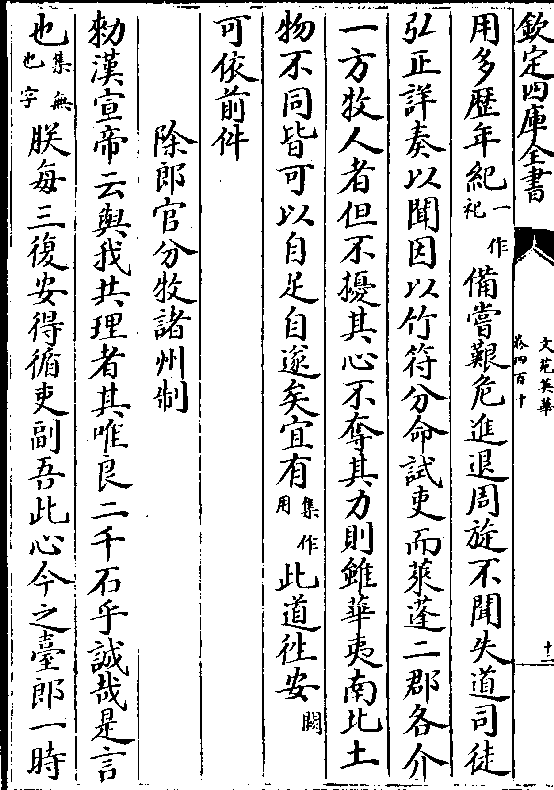 欽定四庫全書
文苑英華
卷四百十
十三
用多歴年紀一作祀備嘗艱危進退周旋不聞失道司徒
弘正詳奏以聞因以竹符分命試吏而萊蓬二郡各介
一方牧人者但不擾其心不奪其力則雖華夷南北土
物不同皆可以自足自遂矣宜有集作用此道徃安闕
可依前件
除郎官分牧諸州制
勑漢宣帝云與我共理者其唯良二千石乎誠哉是言
也集無也字朕每三復安得循吏副吾此心今之臺郎一時